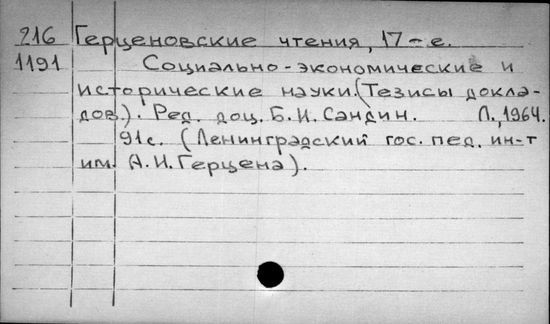 216 Герценовские чтения, 17-е.
1191 Социально-экономические и
исторические науки.(Тезисы докла-
дов.). Ред. доц. Б.И. Сандин. Л., 1964.
91с. (Ленинградский гос. пед. ин-т
им. А.И. Герцена).